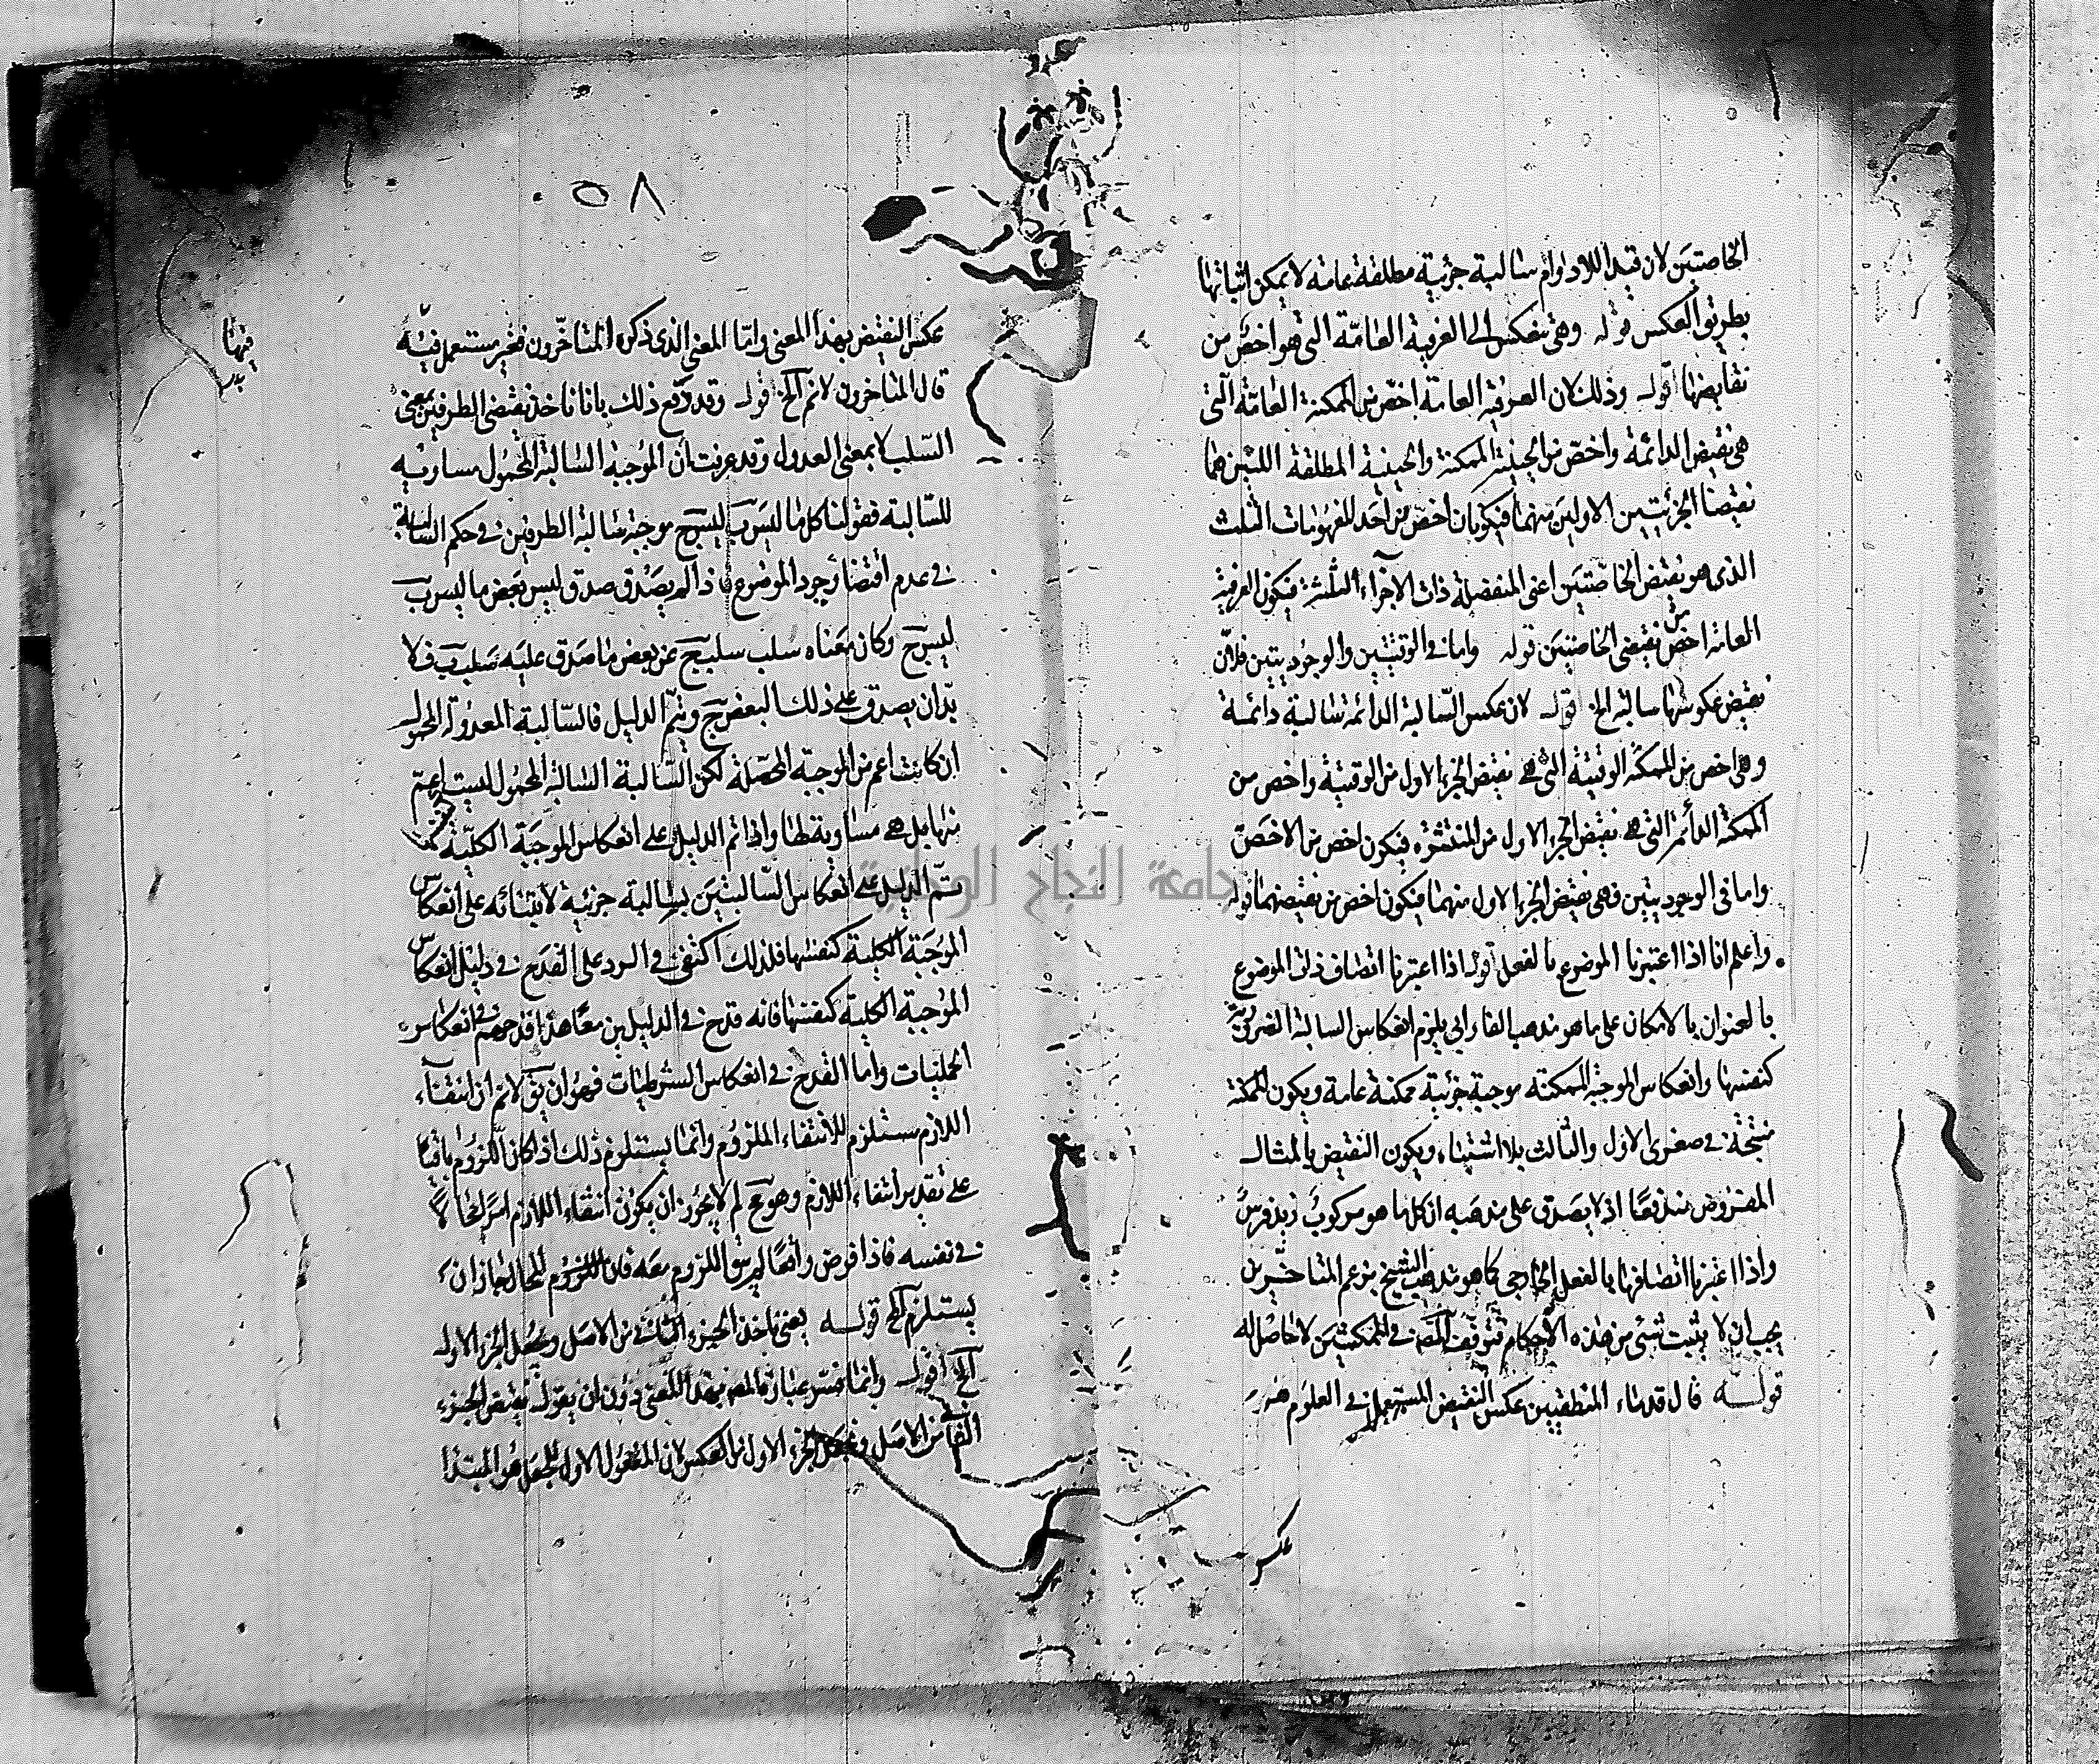 الخاصتين لان قيد اللادوام سالبة جزئية مطلقة عامة لا يمكن اثباتها
بطريق العكس قوله وهي تنعكس الى العرفية العامّة التي هو اخصّ من
نقايضها اقوله وذلك لان العرفية العامة اخصّ من الممكنة العامّة التي
هي نقيض الدائمة واخصّ من الحينية الممكنة والحينية المطلقة اللتين هما
نقيضا الجزئيتين الاوليين منهما فيكونان اخصّ من احد المفهومات الثلث
الذي هو نقيض الخاصّتين اعني المنفصلة ذات الاجزاء الثلثة فيكون العرفية
العامة اخصّ من نقيضي الخاصتين قوله واما في الوقتيتين والوجوديتين فلان
نقيض عكوسها سالبة الخ قوله لان عكس السّالبة الدائمة سالبة دائمة
وهي اخص من الممكنة الوقتية التي هي نقيض الجزء الاول من الوقتية واخص من
الممكنة الدائمة التي هي نقيض الجزء الاول من المنتشرة فيكون اخص من الاخصّ
واما في الوجوديتين فهي نقيض الجزء الاول منهما فيكون اخص من نقيضهما قوله
واعلم انا اذا اعتبرنا الموضوع بالفعل اقوله اذا اعتبرنا اتصاف ذات الموضوع
بالعنوان بالامكان على ما هو مذهب الفارابي يلزم انعكاس السالبة الضرورية
كنفسها وانعكاس الموجبة الممكنة موجبة جزئية ممكنة عامة ويكون الممكنة
منتجة في صغرى الاول والثالث بلا اشتباه ويكون النقيض بالمثال
المفروض مندفعًا اذ لا يصدق على مذهبه ان كلما هو مركوب زيد فرس
واذا اعتبرنا اتصافها بالفعل الخارجي كما هو مذهب الشيخ بزعم المتاخرين
يجب ان لا يثبت شيء من هذه الاحكام فتوقف المصّ في الممكنتين لا حاصل له
قوله قال قدماء المنطقيين عكس النقيض المستعمل في العلوم هو
عكس
٥٨
عكس النقيض بهذا المعنى وامّا المعنى الذي ذكره المتاخّرون فغير مستعمل فيه
فيها
قال المتاخرون لانم الخ قوله وقد دفع ذلك بانا ناخذ نقيضي الطرفين بمعنى
السّلب لا بمعنى العدول وقد عرفت ان الموجبة السّالبة المحمول مساوية
للسّالبة فقولنا كل ما ليس ب ليس ج موجبة سالبة الطرفين في حكم السالبة
في عدم اقتضاء وجود الموضوع فاذا لم يصدق صدق ليس بعض ما ليس ب
ليس ج وكان معناه سلب سلب ج عن بعض ما صدق عليه سلب ب فلا
بدّ ان يصدق على ذلك البعض ج ويتمّ الدليل فالسّالبة المعدولة المحمول
ان كانت اعم من الموجبة المحصّلة لكن السّالبة السّالبة المحمول ليست اعمّ
منها بل هي مساوية لها واذا تم الدليل على انعكاس الموجبة الكلّية كنفسها
تمّ الدليل على انعكاس السّالبتين سالبة جزئية لابتنائه على انعكاس
الموجبة الكلية كنفسها فلذلك اكتفى في الرد على القدح في دليل انعكاس
الموجبة الكلية كنفسها فانه قدح في الدليلين معًا هذا قدحهم في انعكاس
الحمليات واما القدح في انعكاس الشرطيات فهو ان يق لانم ان انتفاء
اللازم مستلزم للانتفاء الملزوم وانما يستلزم ذلك اذا كان اللزوم باقيا
على تقدير انتفاء اللازم وهو مم لم لا يجوز ان يكون انتفاء اللازم امرا محالا
في نفسه فاذا فرض واقعًا لم يبق اللزوم معه فان اللزوم المحال جاز ان
يستلزم الخ قوله يعني ناخذ الجزء الثاني من الاصل ونجعل الجزء الاول
الخ اقول وانما فسر عبارة المص بهذا المعنى دون ان يقول نقيض الجزء
الثاني من الاصل ونجعل الجزء الاول من العكس لان المفعول الاول للجعل هو المبتدا
جامعة النجاح الوطنية